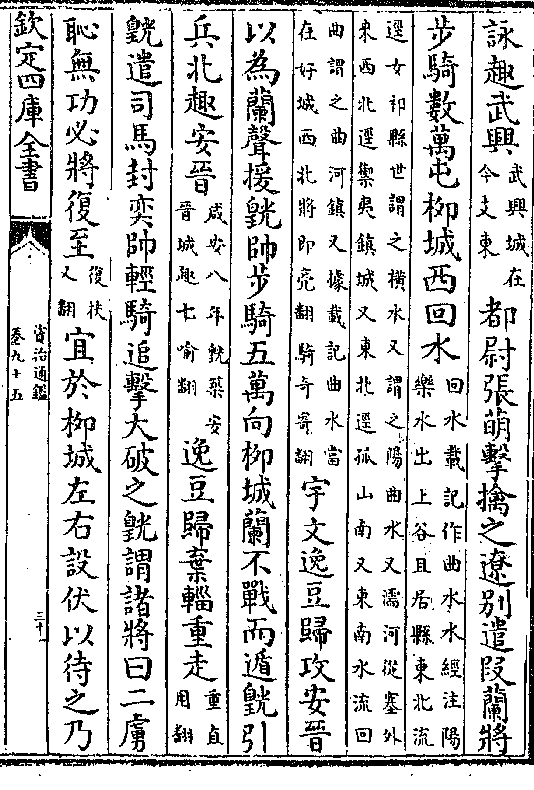 詠趣武興武興城在今支東都尉張萌擊擒之遼別遣段蘭將
步騎數萬屯柳城西回水回水載記作曲水水經注陽樂水出上谷且居縣東北流
逕女祁縣世謂之橫水又謂之陽曲水又濡河從塞外來西北逕禦夷鎮城又東北逕孤山南又東南水流回
曲謂之曲河鎮又據載記曲水當在好城西北將即亮翻騎奇寄翻宇文逸豆歸攻安晉
以為蘭聲援皝帥步騎五萬向柳城蘭不戰而遁皝引
兵北趣安晉咸安八年皝築安晉城趣七喻翻逸豆歸棄輜重走重直用翻
皝遣司馬封奕帥輕騎追擊大破之皝謂諸將曰二虜
恥無功必將復至復扶又翻宜於柳城左右設伏以待之乃
欽定四庫全書
資治通鑑
卷九十五
三十